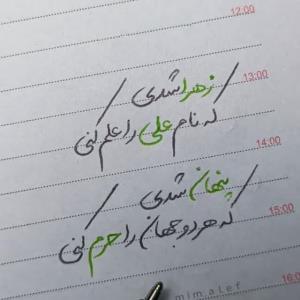 12:00
13:00
زهرا شدی
که نام علی را علم کنی
14:00
پنهان شدی
که هر دو جهان را حرم کنی
15:00
m|m.a|ef
16:0